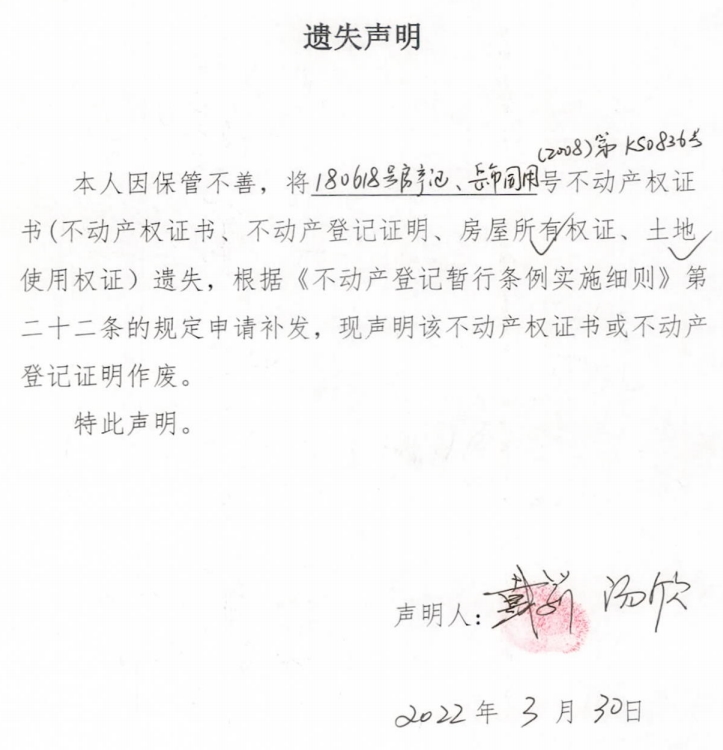 遗失声明
(2008)第KS0836号
本人因保管不善，将180618号房产证、岳市国用号不动产权证
书(不动产权证书、不动产登记证明、房屋所有权证、土地
使用权证）遗失，根据《不动产登记暂行条例实施细则》第
二十二条的规定申请补发，现声明该不动产权证书或不动产
登记证明作废。
特此声明。
声明人：戴 汤欣
2022年3月30日